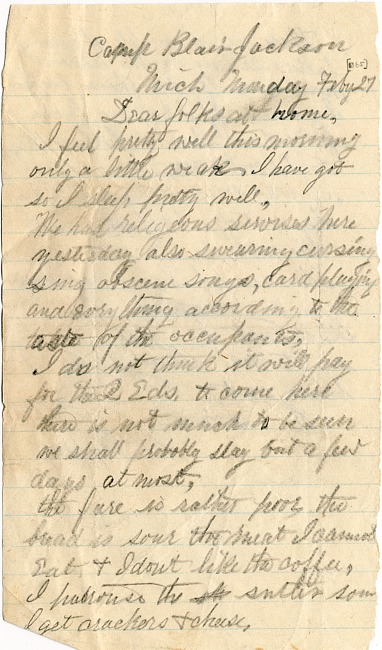 Camp Blair Jackson
[1865]
Mich Monday Feby 27
Dear folks at home,
I feel pretty well this morning
only a little weak, I have got
so I sleep pretty well,
We had religious servises here
yesterday also swearing cursing
sing obscene songs, card playing
and everything according to the
taste of the occupants,
I do not think it will pay
for the 2 Eds, to come here
there is not much to be seen
we shall probably stay but a few
days at most,
the fare is rather poor the
bread is sour the meat I cannot
Eat & I dont like the coffee,
I patronise the sutler som
I get crackers & cheese,